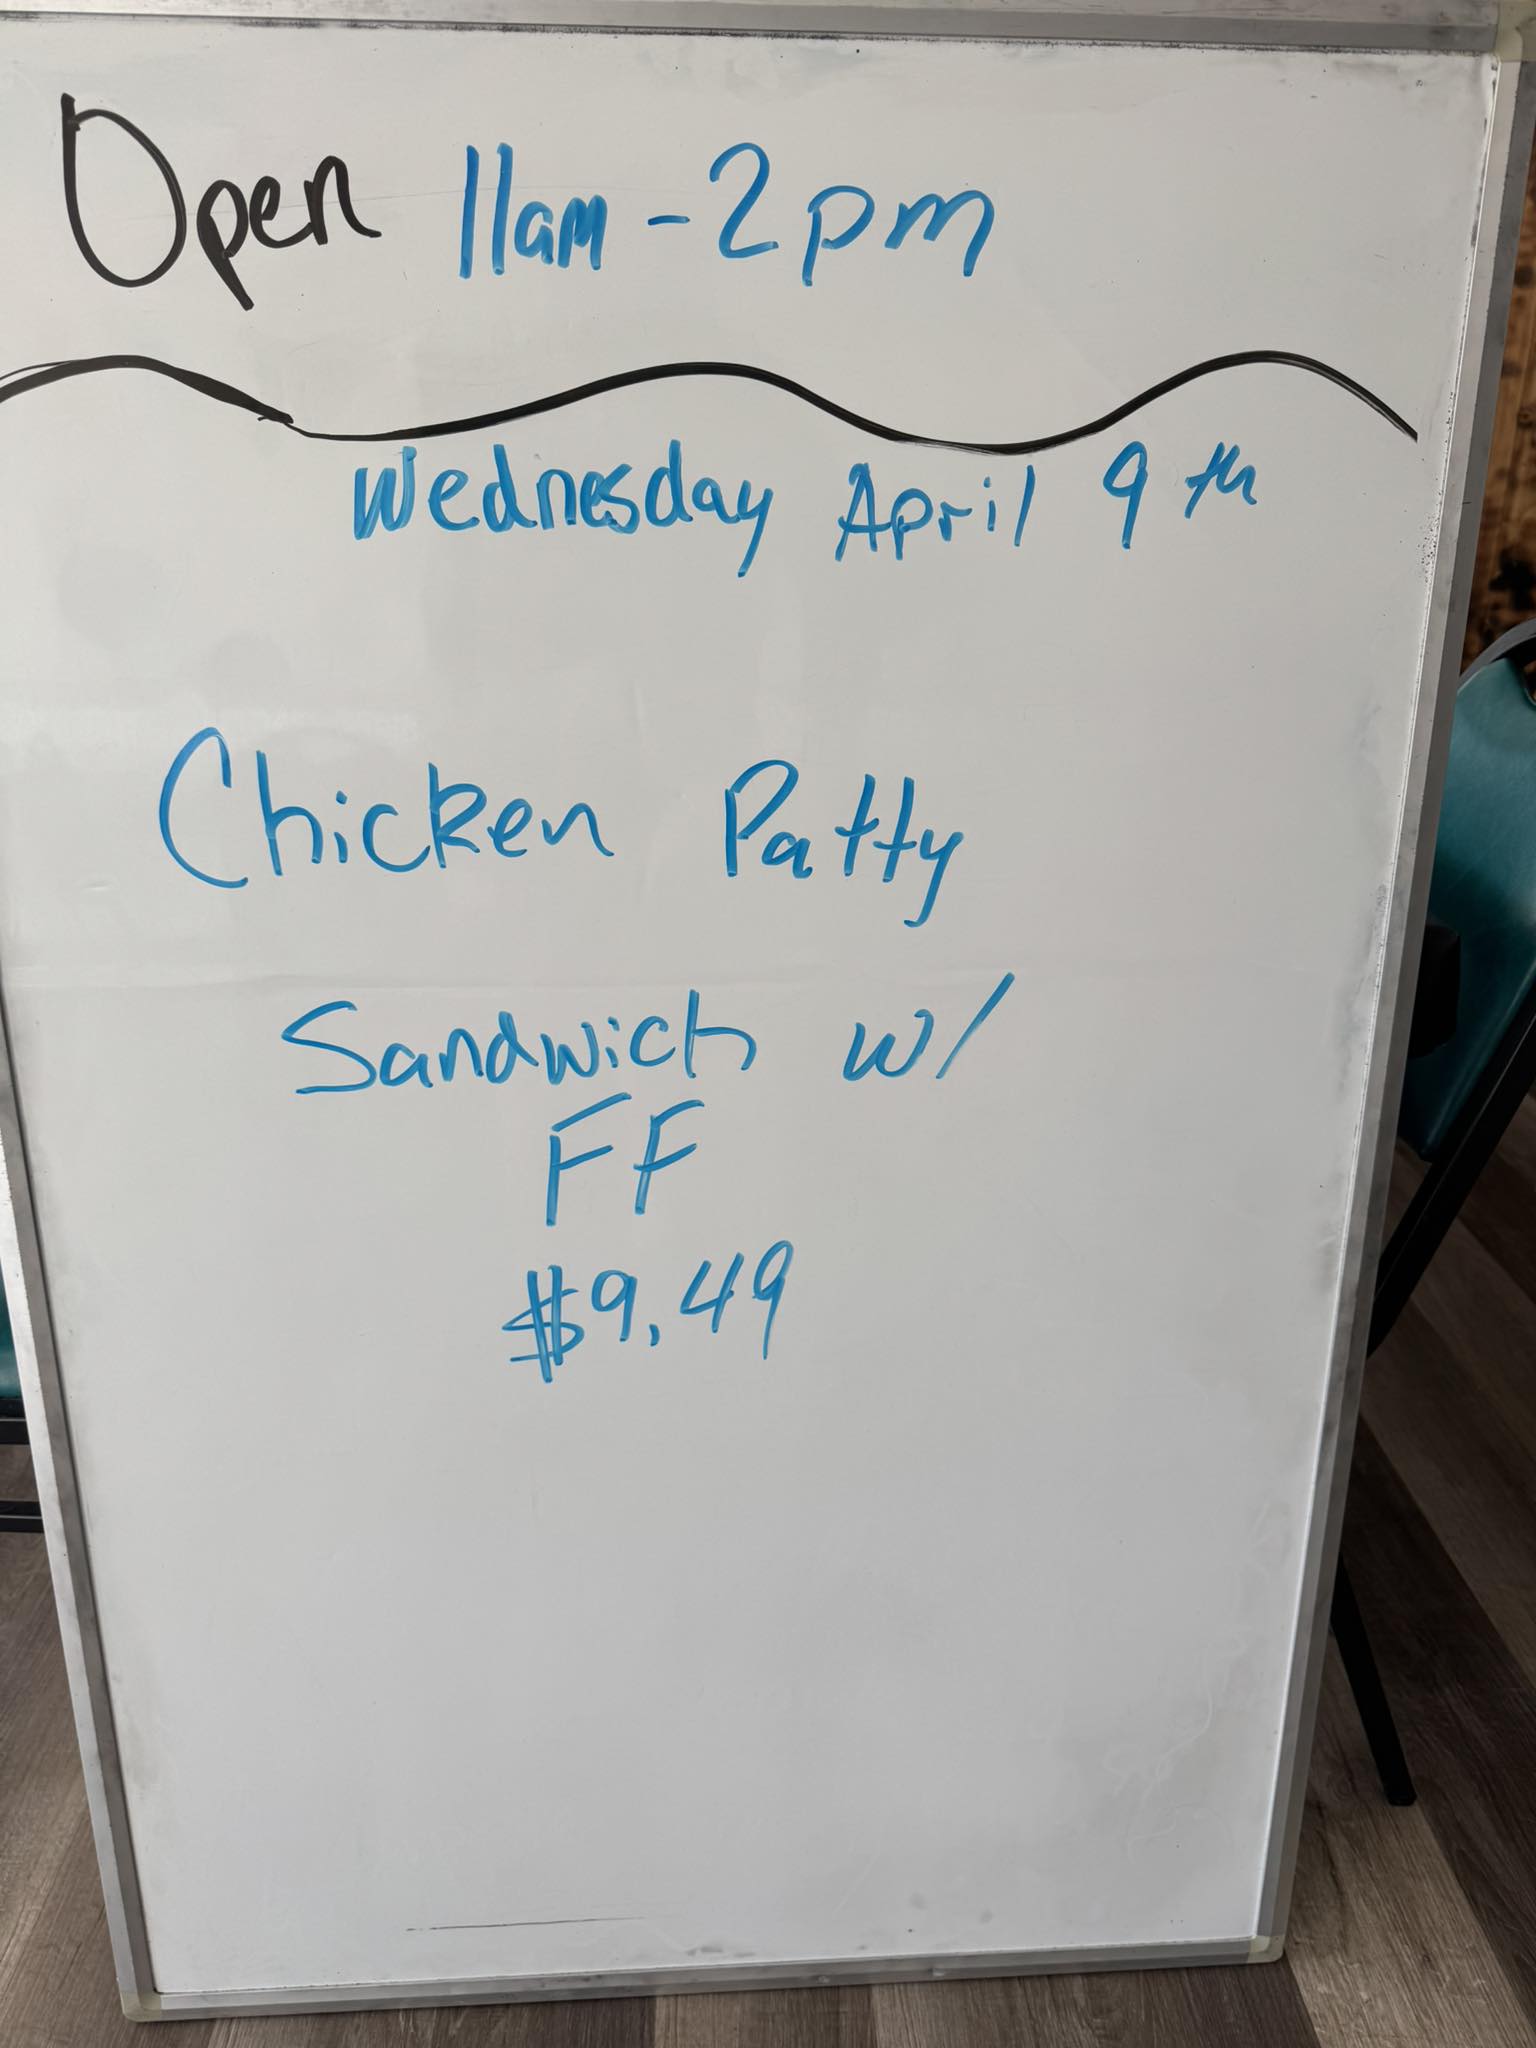 Open 11am - 2pm
Wednesday April 9th
Chicken Patty
Sandwich w/
FF
$9.49